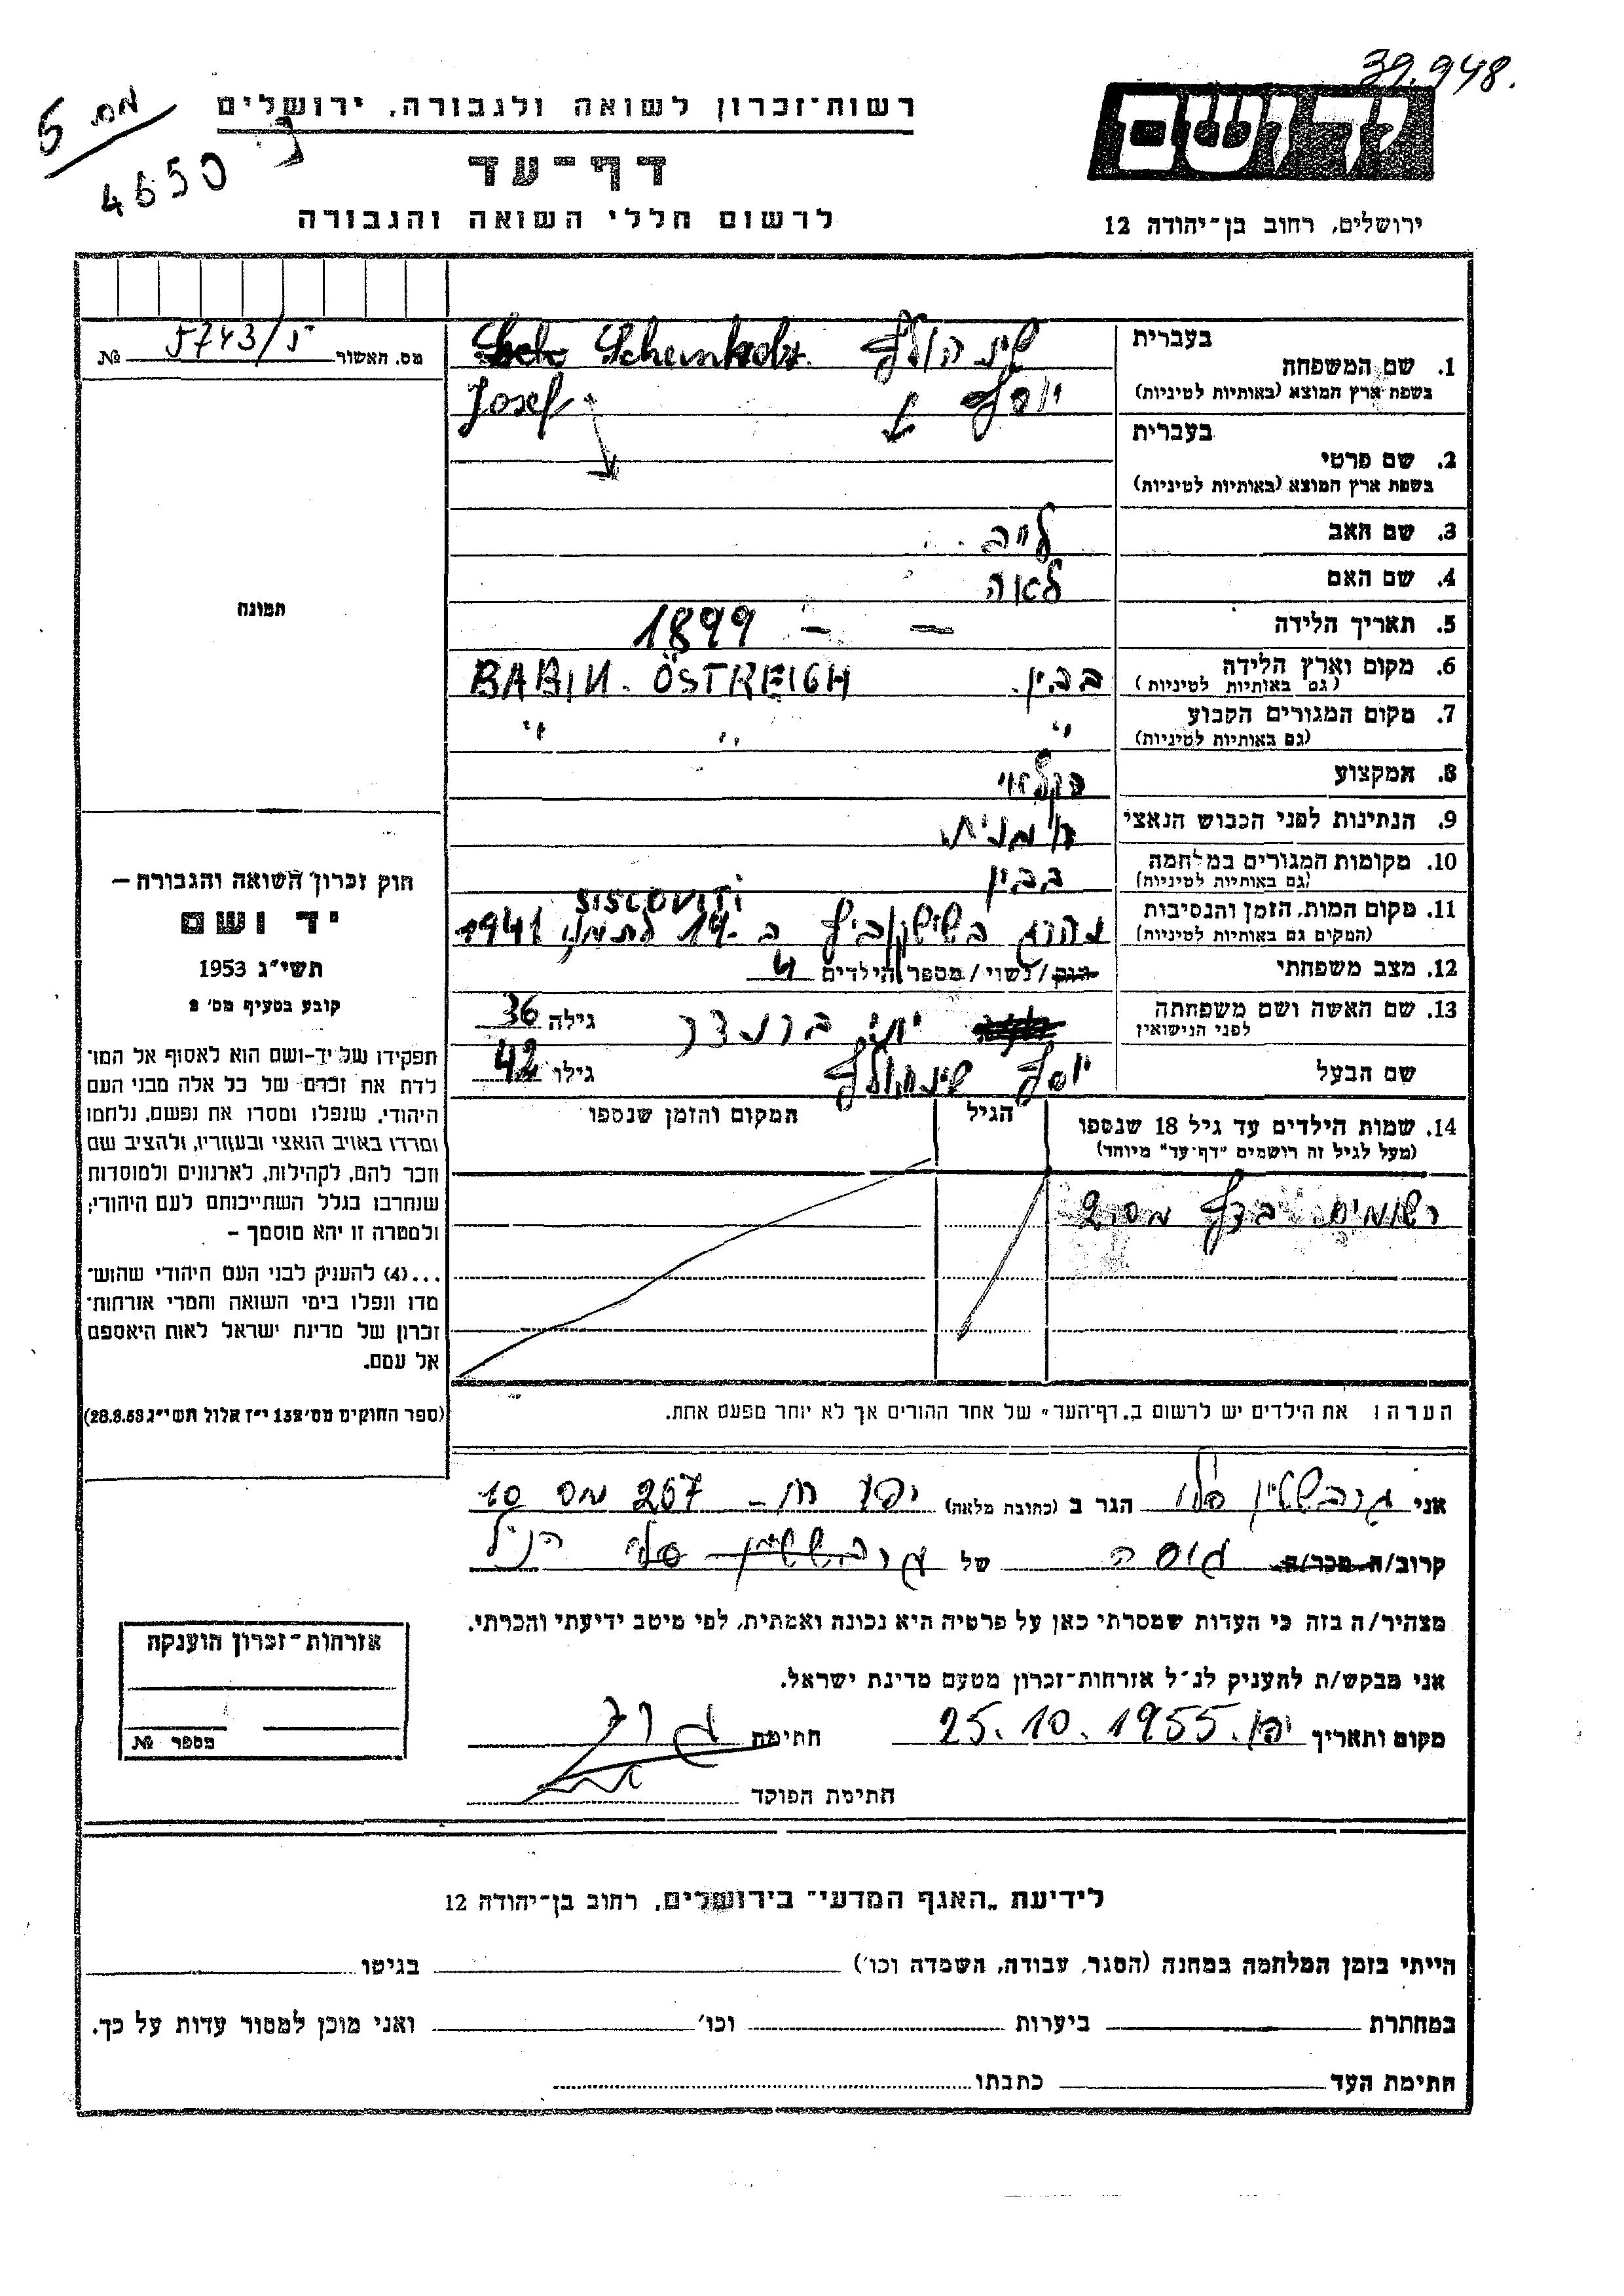 39.948.
מס. 5
4650
רשות־זכרון לשואה ולגבורה, ירושלים
יד ושם
דף־עד
לרשום חללי השואה והגבורה
ירושלים, רחוב בן־יהודה 12
מס. האשור 5743/ № 
בעברית
1. שם המשפחה
בשפת ארץ המוצא (באותיות לטיניות)
Josef יוסף
בעברית
2. שם פרטי
בשפת ארץ המוצא (באותיות לטיניות)
3. שם האב לייב
4. שם האם לאה
5. תאריך הלידה — — 1899
6. מקום וארץ הלידה בבין. BABIN. ÖSTREICH
(גם באותיות לטיניות)
7. מקום המגורים הקבוע " " "
(גם באותיות לטיניות)
8. המקצוע חקלאי
9. הנתינות לפני הכבוש הנאצי רומנית
10. מקומות המגורים במלחמה בבין
(גם באותיות לטיניות)
SISCOVITI
11. מקום המות, הזמן והנסיבות נהרג ב ב 14 1941
(המקום גם באותיות לטיניות)
12. מצב משפחתי רווק/נשוי/מספר הילדים 4
13. שם האשה ושם משפחתה גילה 36
לפני הנישואין
שם הבעל יוסף גילו 42
14. שמות הילדים עד גיל 18 שנספו הגיל המקום והזמן שנספו
(מעל לגיל זה רושמים "דף־עד" מיוחד)
רשומים בדף מס. 2
הערה: את הילדים יש לרשום ב„דף־העד" של אחד ההורים אך לא יותר מפעם אחת.
תמונה
חוק זכרון השואה והגבורה —
יד ושם
תשי"ג 1953
קובע בסעיף מס' 2
תפקידו של יד-ושם הוא לאסוף אל המו־
לדת את זכרם של כל אלה מבני העם
היהודי, שנפלו ומסרו את נפשם, נלחמו
ומרדו באויב הנאצי ובעוזריו, ולהציב שם
וזכר להם, לקהילות, לארגונים ולמוסדות
שנחרבו בגלל השתייכותם לעם היהודי;
ולמטרה זו יהא מוסמך —
...(4) להעניק לבני העם היהודי שהוש־
מדו ונפלו בימי השואה והמרי אזרחות־
זכרון של מדינת ישראל לאות היאספם
אל עמם.
(ספר החוקים מס' 132 י"ז אלול תשי"ג 28.8.53)
אני הגר ב (כתובת מלאה) יפו 267 מס 10
קרוב/ה מכר/ה גיסה של הנ"ל
מצהיר/ה בזה כי העדות שמסרתי כאן על פרטיה היא נכונה ואמתית, לפי מיטב ידיעתי והכרתי.
אני מבקש/ת להעניק לנ"ל אזרחות־זכרון מטעם מדינת ישראל.
מקום ותאריך יפו. 25.10.1955 חתימה
חתימת הפוקד
אזרחות־זכרון הוענקה
מספר №
לידיעת „האגף המדעי" בירושלים, רחוב בן־יהודה 12
הייתי בזמן המלחמה במחנה (הסגר, עבודה, השמדה וכו') בגיטו
במחתרת ביערות וכו' ואני מוכן למסור עדות על כך.
חתימת העד כתבתו